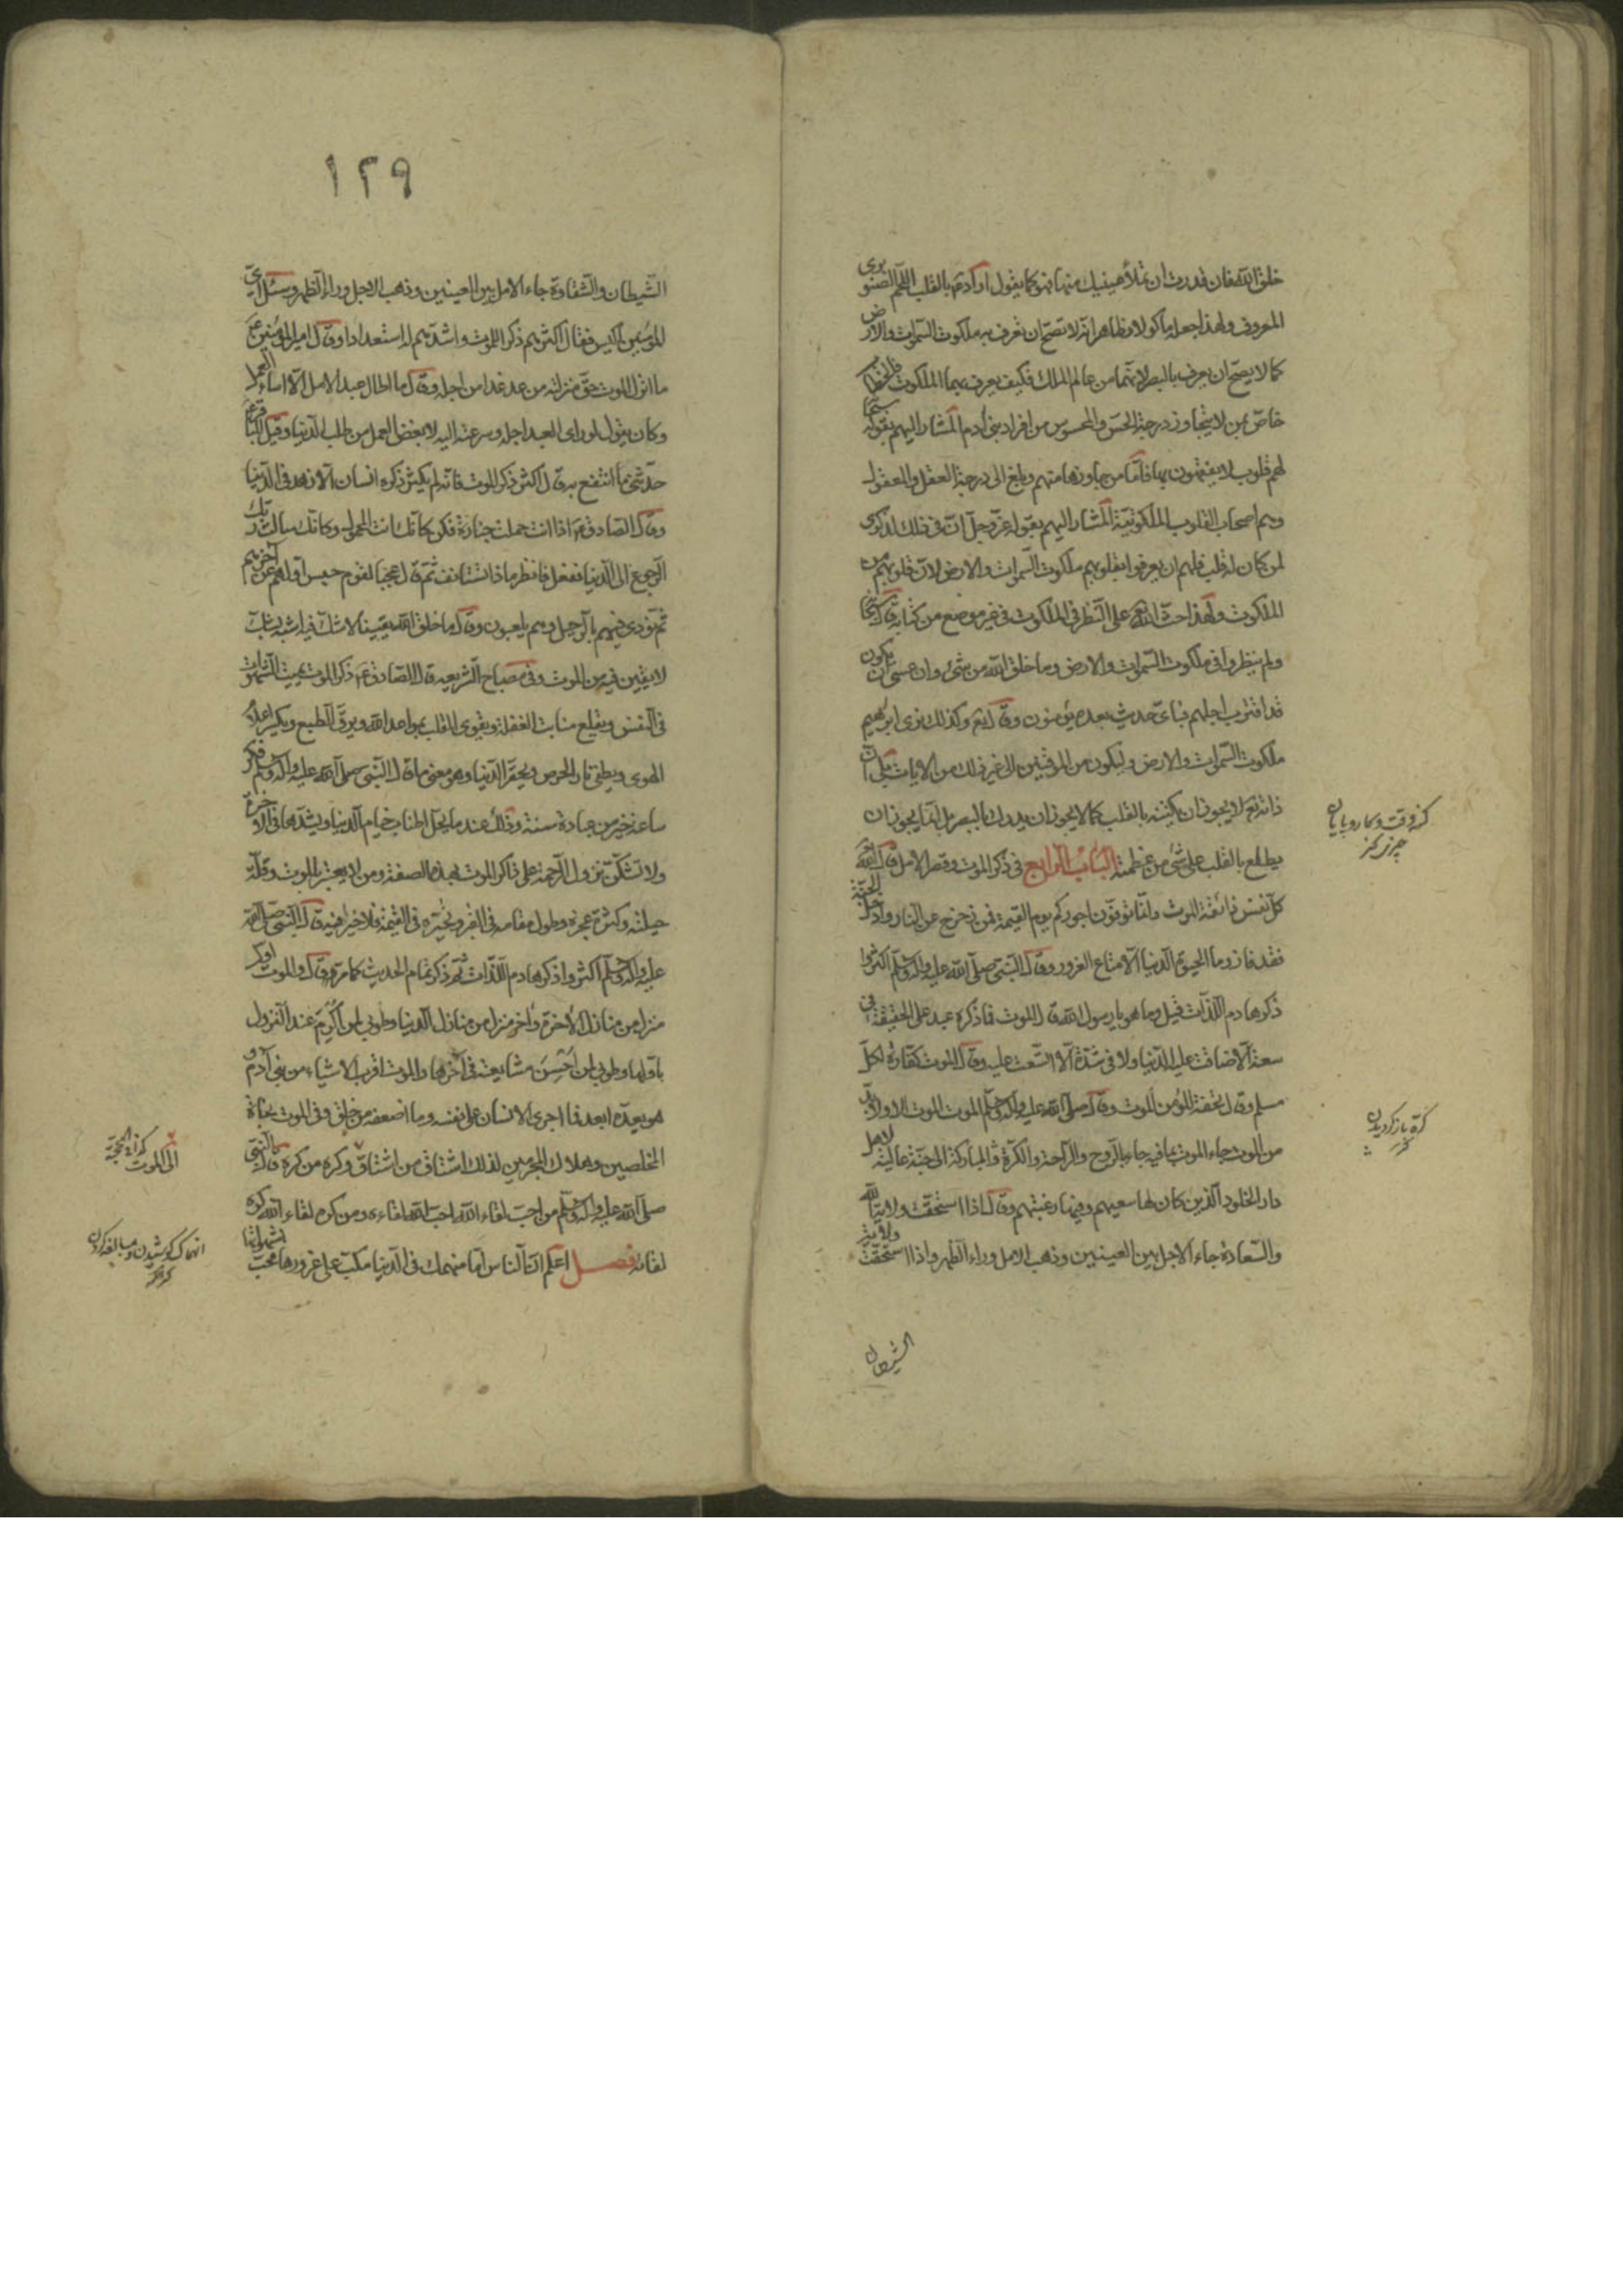 خلق الله فان قدرت ان تملأ عينيك منها فهو كما يقول او كدته بالقلب اللحم الصنوبرى
المعروف ولهذا جعله ماكولا وظاهر انه لا يصح ان يعرف به ملكوت السموات والارض
كما لا يصح ان يعرف بالبصر لانهما من عالم الملك فكيف يعرف بهما الملكوت والخطاب
خاص بمن لا يتجاوز درجة الحس والمحسوس من افراد بنى آدم المشار اليهم بقوله سبحانه
لهم قلوب لا يفقهون بها فاما من جاوزها منهم وبلغ الى درجة العقل والمعقول
وهم اصحاب القلوب الملكوتية المشار اليهم بقوله عز وجل ان فى ذلك لذكرى
لمن كان له قلب فلهم ان يعرفوا بقلوبهم ملكوت السموات والارض لان قلوبهم من
الملكوت ولهذا حث الله تع على النظر فى الملكوت فى غير موضع من كتابه قال سبحانه
ولم ينظروا فى ملكوت السموات والارض وما خلق الله من شئ وان عسى ان يكون
قد اقترب اجلهم فباى حديث بعده يؤمنون وقال تع وكذلك نرى ابرهيم
ملكوت السموات والارض وليكون من الموقنين الى غير ذلك من الايات بلى ان
ذاته تع لا يجوز ان يكتنه بالقلب كما لا يجوز ان يدرك بالبصر بل انما يجوز ان
يطلع بالقلب على شئ من عظمته الباب الرابع فى ذكر الموت وقصر الامل قال الله تع
كل نفس ذائقة الموت وانما توفون اجوركم يوم القيمة فمن زحزح عن النار وادخل الجنة
فقد فاز وما الحيوة الدنيا الا متاع الغرور وقال النبى صلى الله عليه وآله وسلم اكثروا
ذكر هادم اللذات قيل وما هو يا رسول الله قال الموت فما ذكره عبد على الحقيقة فى
سعة الا ضاقت عليه الدنيا ولا فى شدة الا اتسعت عليه وقال الموت كفارة لكل
مسلم وقال تحفة المؤمن الموت وقال صلى الله عليه وآله وسلم الموت الموت الا ولا بد
من الموت جاء الموت بما فيه جاء بالروح والراحة والكرة المباركة الى جنة عالية لاهل
دار الخلود الذين كان لها سعيهم وفيها رغبتهم وقال اذا استحقت ولاية الله
والسعادة جاء الاجل بين العينين وذهب الامل وراء الظهر واذا استحقت ولاية
الشيطان
كرة باز گرديدن
كنز
١٢٩
الشيطان والشقاوة جاء الامل بين العينين وذهب الاجل وراء الظهر وسئل اى
المؤمنين اكيس فقال اكثرهم ذكرا للموت واشدهم له استعدادا وقال امير المؤمنين ع
ما انزل الموت حق منزلته من عد غدا من اجله وقال ما اطال عبد الامل الا اساء العمل
وكان يقول لو راى العبد اجله وسرعته اليه لابغض العمل من طلب الدنيا وقيل للباقر ع
حدثنى ما انتفع به قال اكثر ذكر الموت فانه لم يكثر ذكره انسان الا زهد فى الدنيا
وقال الصادق ع اذا انت حملت جنازة فكن كانك انت المحمول وكانك سالت ربك
الرجوع الى الدنيا ففعل فانظر ماذا تستانف ثم قال عجبا لقوم حبس اولهم عن آخرهم
ثم نودى فيهم بالرحيل وهم يلعبون وقال ما خلق الله يقينا لا شك فيه اشبه بشك
لا يقين فيه من الموت وفى مصباح الشريعه قال الصادق ع ذكر الموت يميت الشهوات
فى النفس ويقلع منابت الغفلة ويقوى القلب بمواعد الله ويرق الطبع ويكسر اعلام
الهوى ويطفى نار الحرص ويحقر الدنيا وهو معنى ما قال النبى صلى الله عليه وآله وسلم فكر
ساعة خير من عبادة سنة وذلك عند ما يحل اطناب خيام الدنيا ويشدها فى الآخرة
ولا تشك بنزول الرحمة على ذاكر الموت بهذه الصفة ومن لا يعتبر بالموت وقلة
حيلته وكثرة عجزه وطول مقامه فى القبر وتحيره فى القيمة فلا خير فيه قال النبى صلى الله
عليه وآله وسلم اكثروا ذكر هادم اللذات ثم ذكر تمام الحديث كما مر ثم قال والموت اول
منزل من منازل الآخرة وآخر منزل من منازل الدنيا وطوبى لمن اكرم عند النزول
باولها وطوبى لمن احسن مشايعته فى آخرها والموت اقرب الاشياء من بنى آدم و
هو يعده ابعد فما اجرى الانسان على نفسه وما اضعفه من خلق وفى الموت نجاة
المخلصين وهلاك المجرمين لذلك اشتاق من اشتاق وكره من كره قال النبى
صلى الله عليه وآله وسلم من احب لقاء الله احب الله لقاءه ومن كره لقاء الله كره
لقائه فصل اعلم ان الناس اما منهمك فى الدنيا مكب على غرورها محب لشهواتها
الى الموت
انهماك كوشيدن ومبالغه كردن